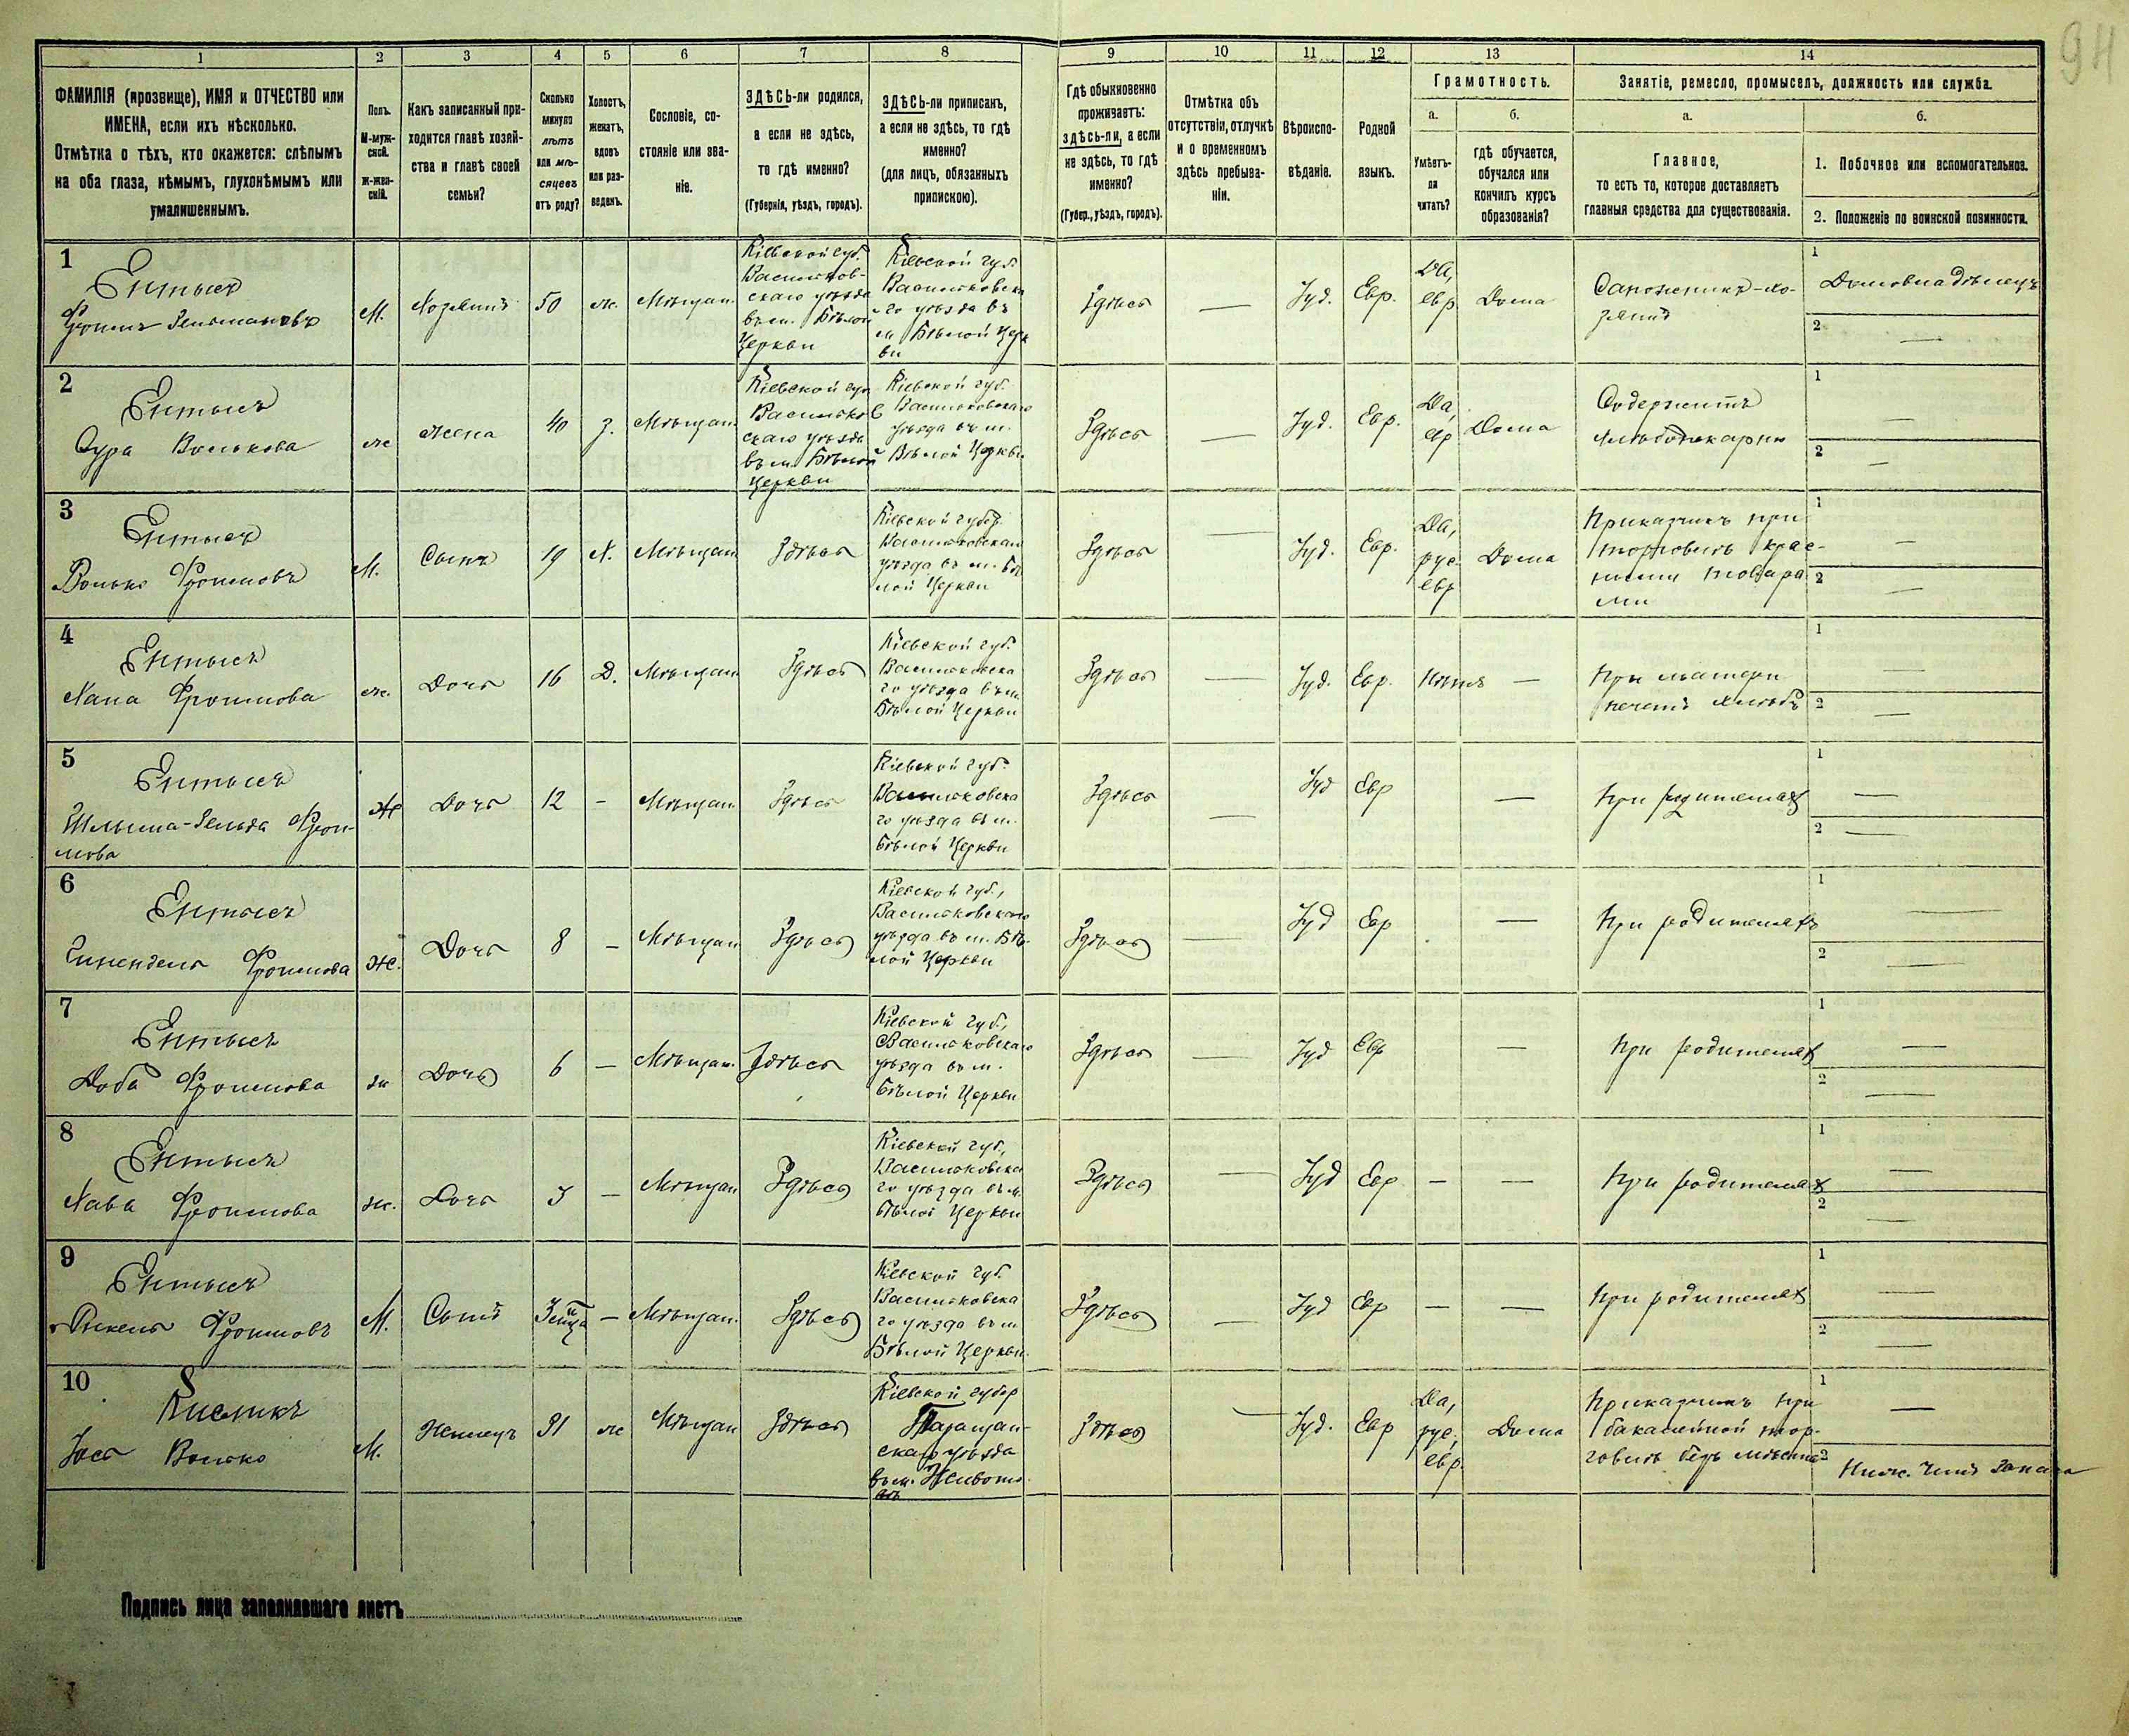 94
1 2 3 4 5 6 7 8 9 10 11 12 13 14
ФАМИЛІЯ (прозвище), ИМЯ и ОТЧЕСТВО или
ИМЕНА, если ихъ нѣсколько.
Отмѣтка о тѣхъ, кто окажется: слѣпымъ
на оба глаза, нѣмымъ, глухонѣмымъ или
умалишеннымъ.
Полъ.
М-муж-
ской.
Ж-жен-
скій.
Какъ записанный при-
ходится главѣ хозяй-
ства и главѣ своей
семьи?
Сколько
минуло
лѣтъ
или мѣ-
сяцевъ
отъ роду?
Холостъ,
женатъ,
вдовъ
или раз-
веденъ.
Сословіе, со-
стояніе или зва-
ніе.
ЗДѢСЬ-ли родился,
а если не здѣсь,
то гдѣ именно?
(Губернія, уѣздъ, городъ).
ЗДѢСЬ-ли приписанъ,
а если не здѣсь, то гдѣ
именно?
(для лицъ, обязанныхъ
припискою).
Гдѣ обыкновенно
проживаетъ:
здѣсь-ли, а если
не здѣсь, то гдѣ
именно?
(Губер., уѣздъ, городъ).
Отмѣтка объ
отсутствіи, отлучкѣ
и о временномъ
здѣсь пребыва-
ніи.
Вѣроиспо-
вѣданіе.
Родной
языкъ.
Грамотность.
а.
Умѣетъ-
ли
читать?
б.
гдѣ обучается,
обучался или
кончилъ курсъ
образованія?
Занятіе, ремесло, промыселъ, должность или служба.
а.
Главное,
то есть то, которое доставляетъ
главныя средства для существованія.
б.
1. Побочное или вспомогательное.
2. Положеніе по воинской повинности.
1
Ентысъ
Фроимъ
М.
Хозяинъ
50
ж.
Мѣщан.
Кіевской губ.
Васильков-
скаго уѣзда
въ м. Бѣлой
Церкви
Кіевской губ.
Васильковска
го уѣзда въ
м Бѣлой Церк
ви
Здѣсь
—
Іуд.
Евр.
Да,
евр
Дома
Сапожникъ-хо-
зяинъ
1
Домовладѣлецъ
2 —
2
Ентысъ
Сура Волькова
ж
Жена
40
з.
Мѣщан
Кіевской губ
Васильков
скаго уѣзда
въ м. Бѣлой
Церкви
Кіевской губ.
Васильковскаго
уѣзда въ м.
Бѣлой Церкви
Здѣсь
—
Іуд.
Евр.
Да,
евр
Дома
Содержитъ
хлѣбопекарню
1 —
2 —
3
Ентысъ
Волько Фроимовъ
М.
Сынъ
19
Х.
Мѣщан
Здѣсь
Кіевской губер.
Васильковскаго
уѣзда въ м. Бѣ
лой Церкви
Здѣсь
—
Іуд.
Евр.
Да,
рус.
евр
Дома
Приказчикъ при
торговлѣ крас-
ными товара
ми
1 —
2 —
4
Ентысъ
Хана Фроимова
ж.
Дочь
16
Д.
Мѣщан
Здѣсь
Кіевской губ.
Васильковска
го уѣзда въ м.
Бѣлой Церкви
Здѣсь
—
Іуд.
Евр.
Нѣтъ
—
При матери
печетъ хлѣбъ
1 —
2 —
5
Ентысъ
Фрои-
мова
Ж
Дочь
12
-
Мѣщан.
Здѣсь
Кіевской губ.
Васильковска
го уѣзда въ м.
Бѣлой Церкви
Здѣсь
—
Іуд
Евр
—
При родителях
1 —
2 —
6
Ентысъ
Фроимова
Ж.
Дочь
8
-
Мѣщан
Здѣсь
Кіевской губ.,
Васильковскаго
уѣзда въ м. Бѣ-
лой Церкви
Здѣсь
—
Іуд
Евр
—
При родителяхъ
1 —
2 —
7
Ентысъ
Доба Фроимова
ж
Дочь
6
—
Мѣщан.
Здѣсь
Кіевской губ.,
Васильковскаго
уѣзда въ м.
Бѣлой Церкви
Здѣсь
—
Іуд
Евр
—
При родителях
1 —
2 —
8
Ентысъ
Хава Фроимова
ж.
Дочь
3
—
Мѣщан
Здѣсь
Кіевской губ.,
Васильковска
го уѣзда въ м.
Бѣлой Церкви
Здѣсь
—
Іуд
Евр
—
—
При родителях
1 —
2 —
9
Ентысъ
Фроимовъ
М.
Сынъ
—
Мѣщан.
Здѣсь
Кіевской губ.
Васильковска
го уѣзда въ м
Бѣлой Церкви.
Здѣсь
—
Іуд
Евр
—
—
При родителях
1 —
2 —
10
Кисликъ
Іось Волько
М.
31
ж
Мѣщан
Здѣсь
Кіевской губер
Таращан-
скаго уѣзда
въ м. Животов
Здѣсь
—
Іуд.
Евр
Да,
рус,
евр.
Дома
Приказчикъ при
бакалейной тор-
говлѣ безъ мѣста
1 —
2
Ниж. чинъ запаса
Подпись лица заполнявшаго листъ